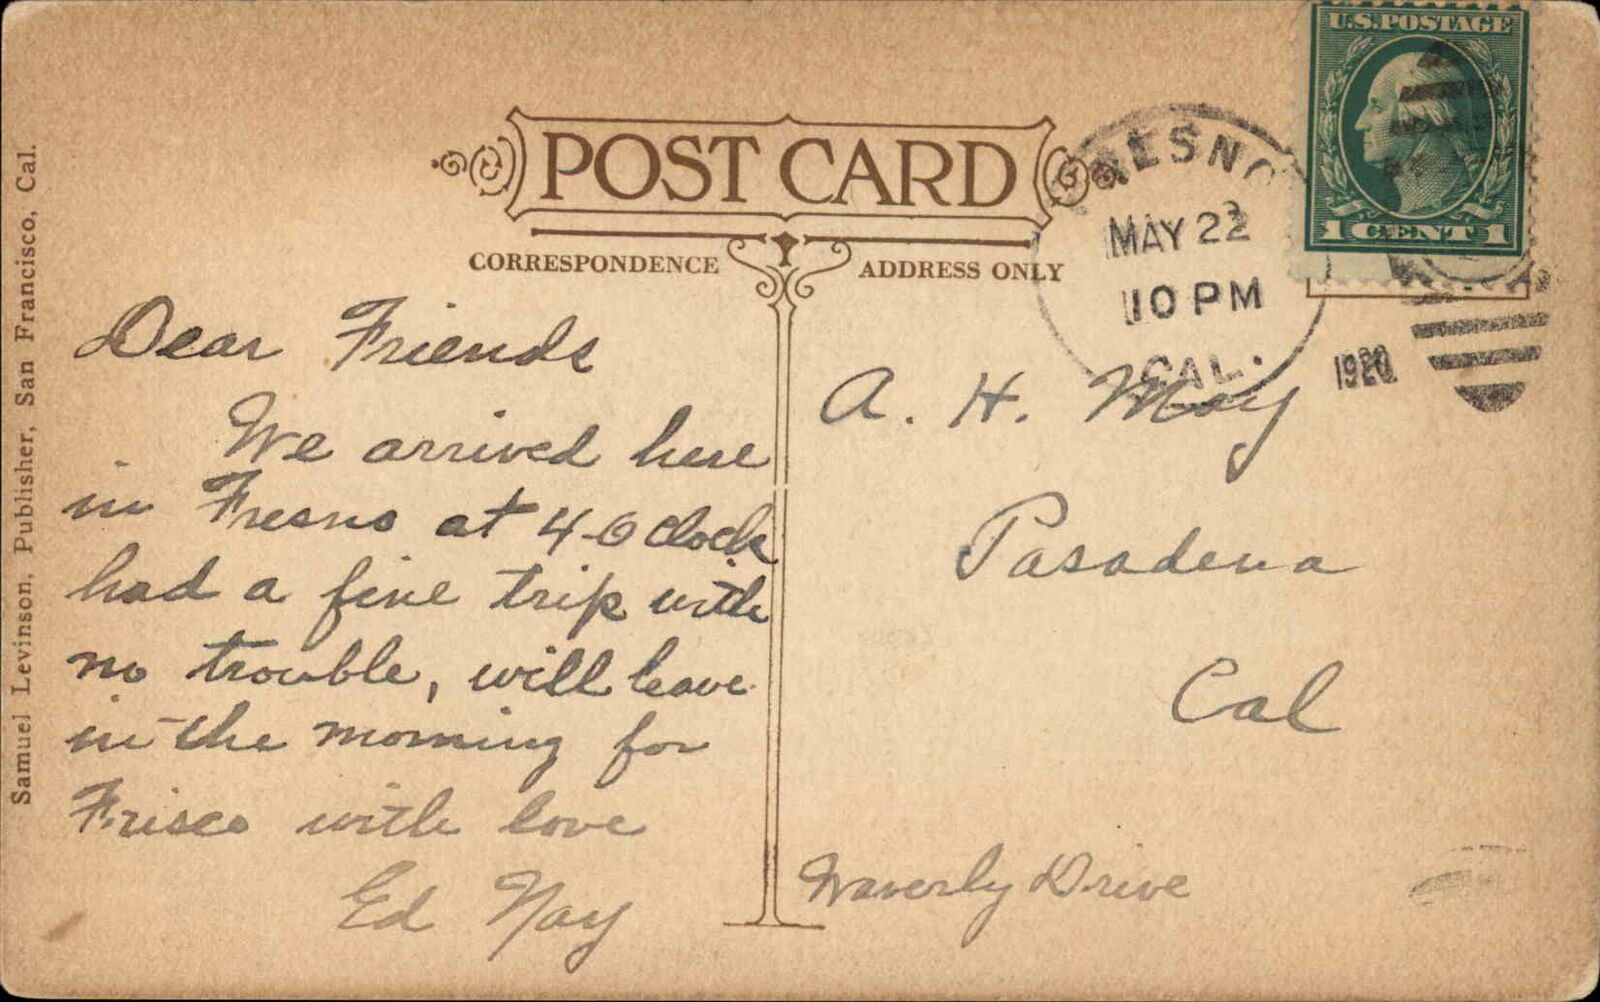 Samuel Levinson, Publisher, San Francisco, Cal.
POST CARD
CORRESPONDENCE
ADDRESS ONLY
U.S. POSTAGE
1 CENT 1
FRESNO
MAY 22
10 PM
CAL.
1920
Dear Friends
We arrived here
in Fresno at 4-O clock
had a fine trip with
no trouble, will leave
in the morning for
Frisco with love
Ed Nay
A. H. May
Pasadena
Cal
Waverly Drive